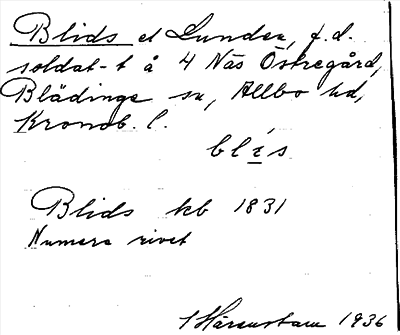 Blids el Lunden, f.d.
soldat-t å 4 Näs Östregård,
Blädinge sn, Allbo hd,
Kronob. l.
blis
Blids kb 1831
Numera rivet
1936